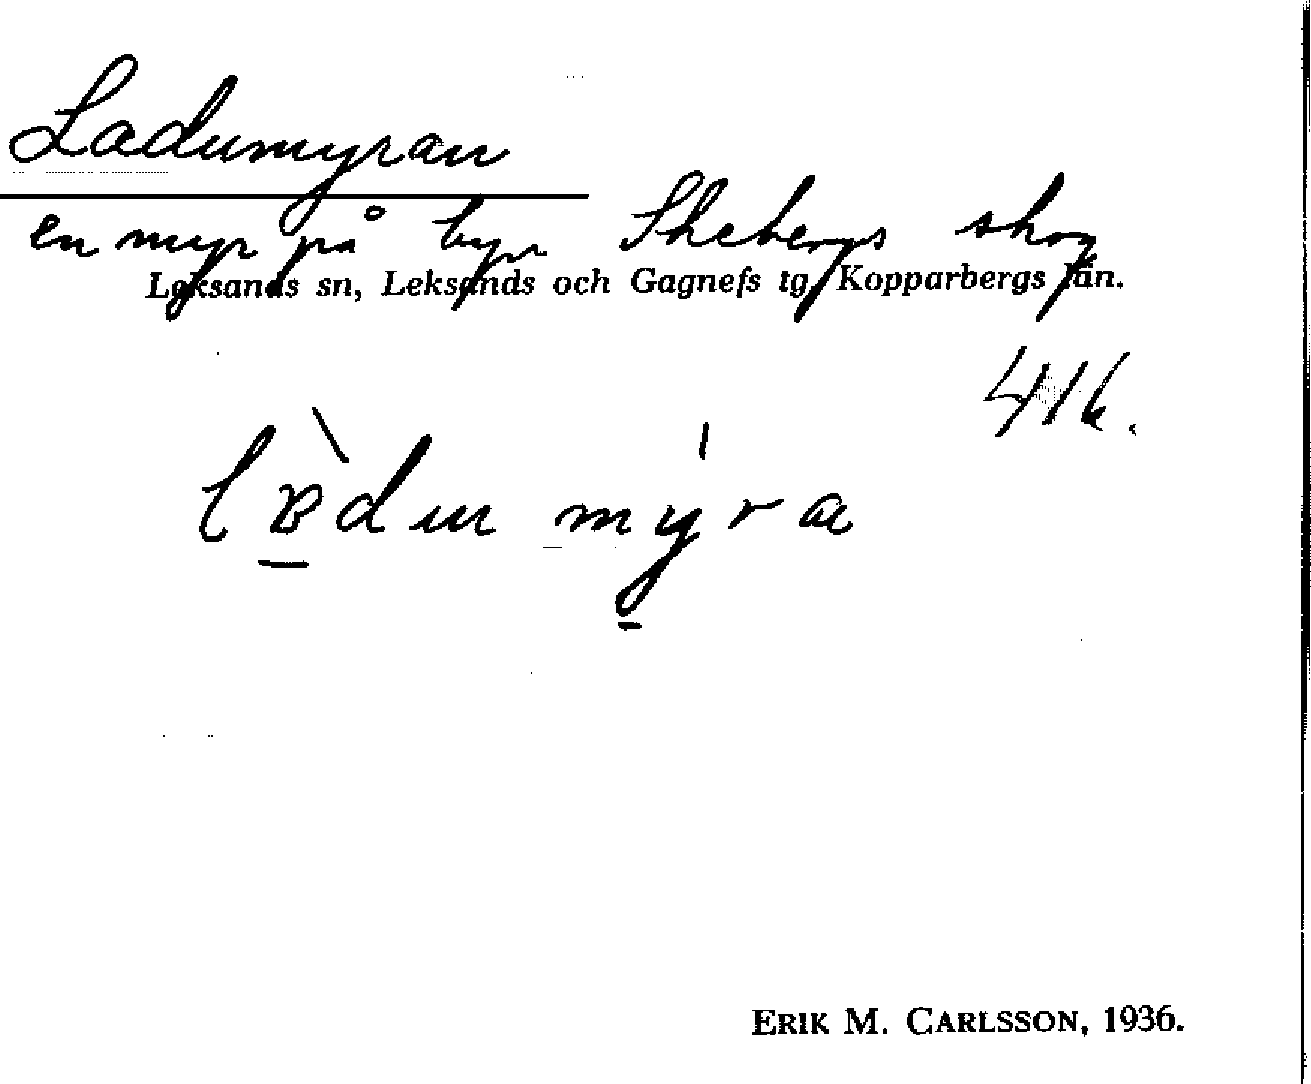 Ladumyran
en myr på byn Skebergs skog
Leksands sn, Leksands och Gagnefs tg, Kopparbergs län.
416.
myra
ERIK M. CARLSSON, 1936.